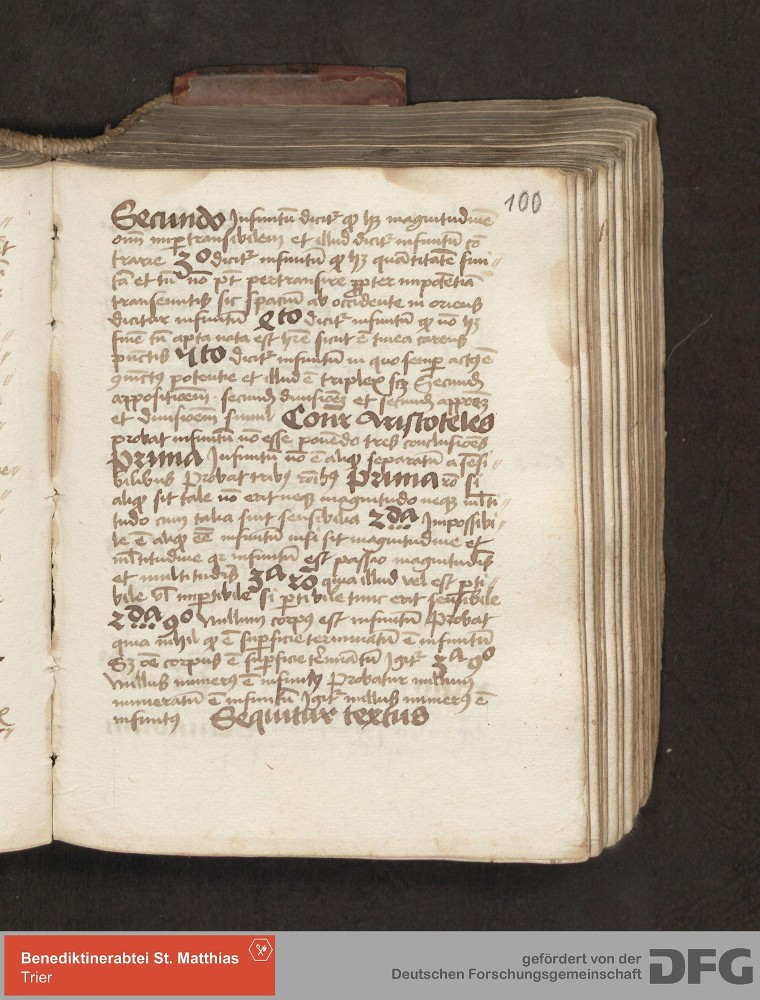 100
Secundo Infinitū dicitr̄ qd̄ hz magnitudinē
om̄ī imp̄transibilem et illud dicitr̄ infinitū cō
trarie 3o dicitr̄ infinitū qd̄ hz quātitatē fini
tā et tn̄ nō pt̄ pertransire ꝓpter impotētiā
transeuntis sic spaciū ab occidente in oriens
dicitur infinitū 4to dicitr̄ infinitū qd̄ nō hz
fine tn̄ apta nata est hr̄e sicut ē linea carens
punctis 5to dicitr̄ infinitū in quo semꝑ actꝰ ē
ꝯiūctꝰ potentie et illud ē triplex scz Secundū
appositiōem secundū diuisiōez et secundū appoēz
et diuisiōem simul Aristoteles
probat infinitū nō esse ponēdo tres conclusiōes
Prima Infinitū nō ē aliqd̄ separatū a sēsi
bilibus Probat tribꝫ rōibꝫ Prima rō si
aliqd̄ sit tale nō erit neqꝫ magnitudo neqꝫ ml̄ti
tudo cum talia sint sensibilia 2da Impossibi
le ē aliqd̄ eē infinitū nisi sit magnitudine et
ml̄titudine qr infinitū est passio magnitudīs
et multitudīs 3a rō quia illud vel est ꝑti
bile vl̄ imꝑtibile si ꝑtibile tunc erit sensibile
2da ꝯo Nullum corpꝰ est infinitū Probat
quia nihil qd̄ ē suꝑficie terminatū ē infinitū
Sz oē corpus ē suꝑficie tērīatū Igitr̄ 3a ꝯo
Nullus numerꝰ ē infinitꝰ Probatur nullum
numeratū ē infinitū Igitr̄ nullus numerꝰ ē
infinitꝰ Sequitur textus
Benediktinerabtei St. Matthias
Trier
gefördert von der
Deutschen Forschungsgemeinschaft
DFG